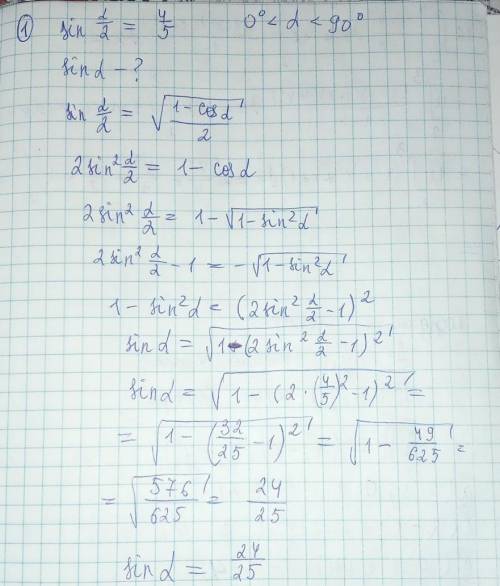 ① sin α/2 = 4/5   0° < α < 90°
sin α - ?
sin α/2 = √((1 - cos α)/2)
2 sin² α/2 = 1 - cos α
2 sin² α/2 = 1 - √(1 - sin² α)
2 sin² α/2 - 1 = -√(1 - sin² α)
1 - sin² α = (2 sin² α/2 - 1)²
sin α = √(1 - (2 sin² α/2 - 1)²)
sin α = √(1 - (2 · (4/5)² - 1)²) =
= √(1 - (32/25 - 1)²) = √(1 - 49/625) =
= √(576/625) = 24/25
sin α = 24/25